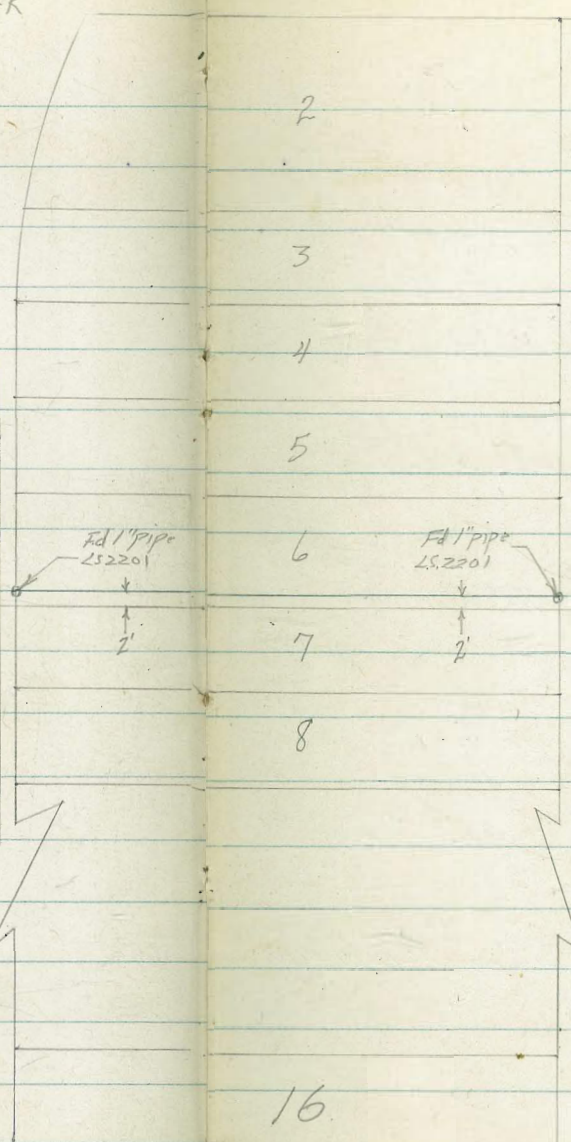 2
3
4
5
6
Fd 1" pipe
LS2201
Fd 1" pipe
LS2201
2'
7
2'
8
16